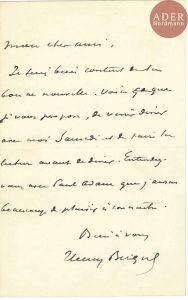 ADER
Nordmann
Mon cher ami,
Je suis bien content de la
bonne nouvelle. Voici ce que
je vous propose, de venir dîner
avec moi Samedi et de faire la
lecture avant de dîner. Entendez-
vous avec Paul Adam que j'aurais
beaucoup de plaisir à connaître.
Bien à vous
Henry